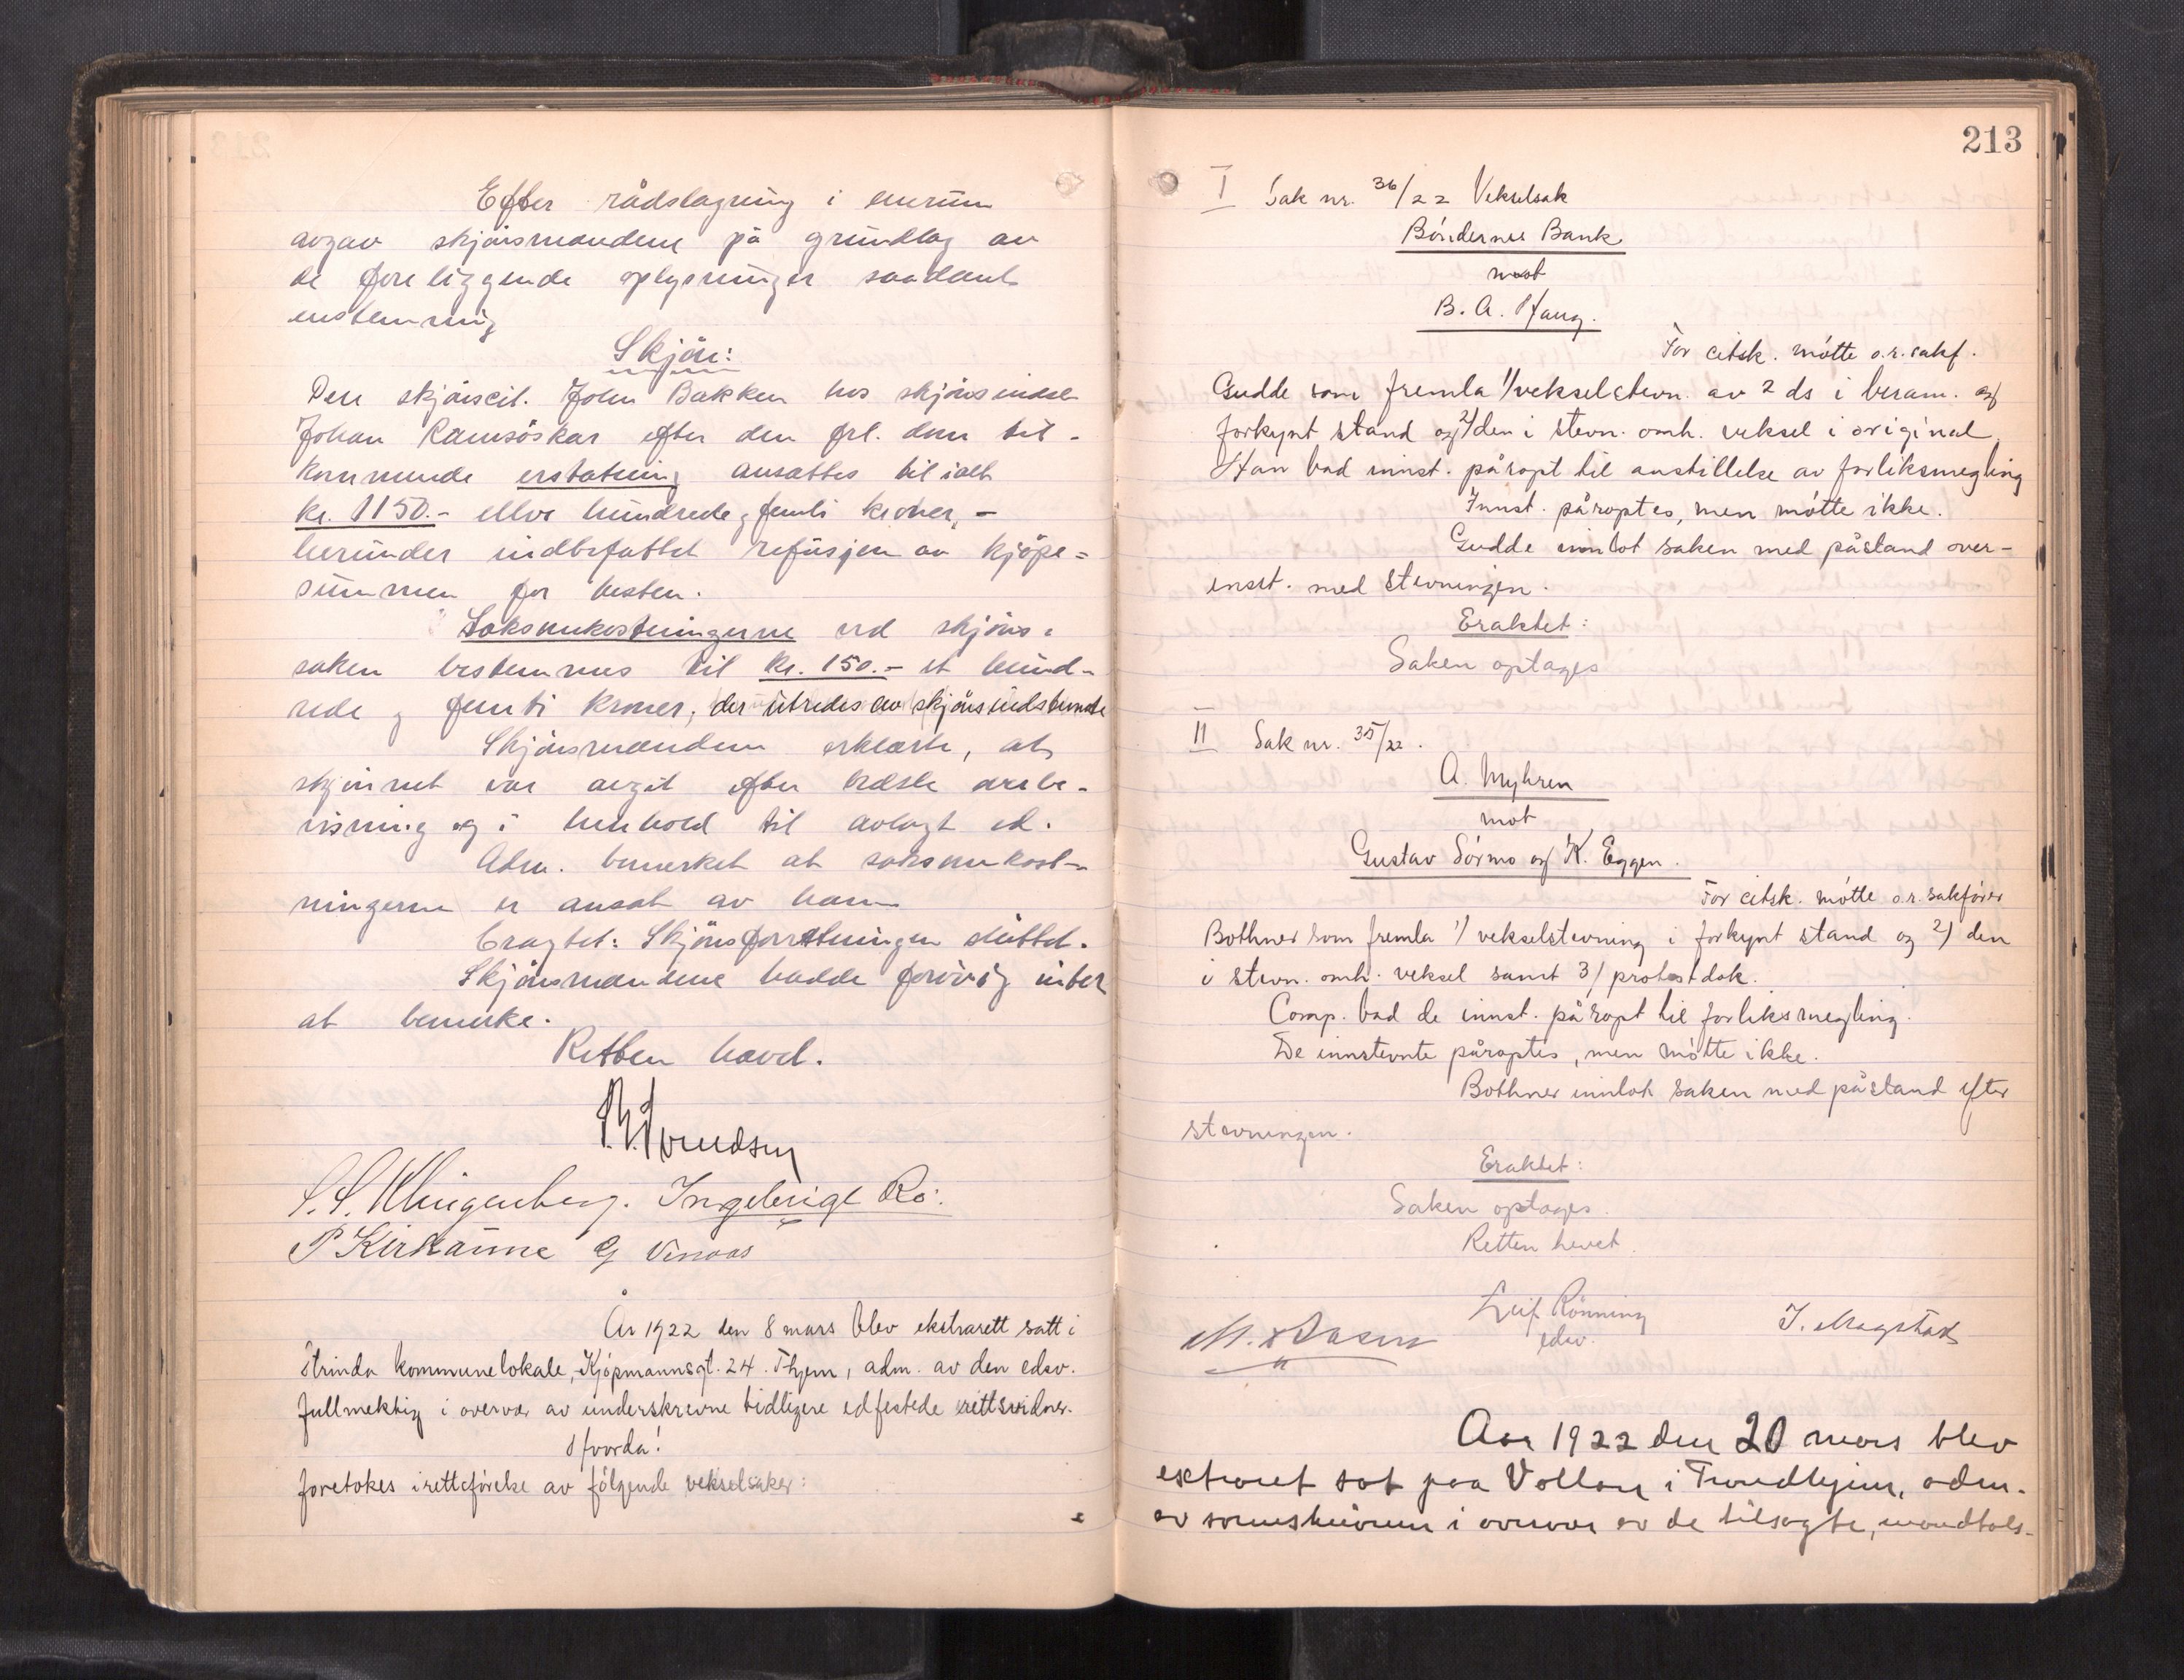 Efter rådslagning i enrum
avgav skjønsmændene på grundlag av
de foreliggende oplysninger saadant
enstemmig
Skjön:
Den skjönscit. John Bakken hos skjönsindst.
Johan Ramsöskar efter den frl. dom til-
kommende erstatning ansattes til ialt
kr. 1150.- elleve hundrede og femti kroner, -
herunder indbefattet refusjon av kjöpe=
summen for hesten.
Saksomkostningerne ved skjöns=
saken bestemmes til kr. 150.- et hund-
rede og femti kroner, der utredes av skjönsindstevnte
Skjönsmændene erklærte, at
skjönnet var avgit efter bedste overbe-
visning og i henhold til avlagt ed.
Adm. bemerket at saksomkost-
ningerne er ansat av ham
Eragtet: Skjönsforretningen sluttet.
Skjönsmændene hadde forövrig intet
at bemerke.
Retten hævet.
S. S. Klingenberg. Ingebrigt Rö.
P Kirkaune G Vinaas
År 1922 den 8 mars blev ekstrarett satt i
Strinda kommunelokale, Kjøpmannsgt. 24. Thjem, adm. av den edsv.
fullmektig i overvær av underskrevne tidligere edfestede rettsvidner.
Hvorda!
foretokes irettførelse av følgende vekselsaker:
213
I Sak nr. 36/22 Vekselsak
Bøndernes Bank
mot
B. A. Haug.
For citsk. møtte o.r.sakf.
Gudde som fremla 1/ vekselstevn. av 2 ds i beram. og
forkynt stand og 2/ den i stevn. omh. veksel i original.
Han bad innst. påropt til anstillelse av forliksmegling
Innst. påroptes, men møtte ikke.
Gudde innlot saken med påstand over-
enst. med stevningen.
Eraktet:
Saken optages
II Sak nr. 35/22.
A. Myhren
mot
Gustav Sørmo og K. Eggen.
For citsk. møtte o.r.sakfører
Bothner som fremla 1/ vekselstevning i forkynt stand og 2/ den
i stevn. omh. veksel samt 3/ protestdok.
Comp. bad de innst. påropt til forliksmegling.
De innstevnte påroptes, men møtte ikke.
Bothner innlot saken med påstand efter
stevningen.
Eraktet:
Saken optages.
Retten hevet.
Leif Rönning
edsv.
J. Magstad
Aar 1922 den 20 mars blev
extraret sat paa Vollan i Trondhjem, adm.
av sorenskriveren i overvær av de tilsagte, mandtals-